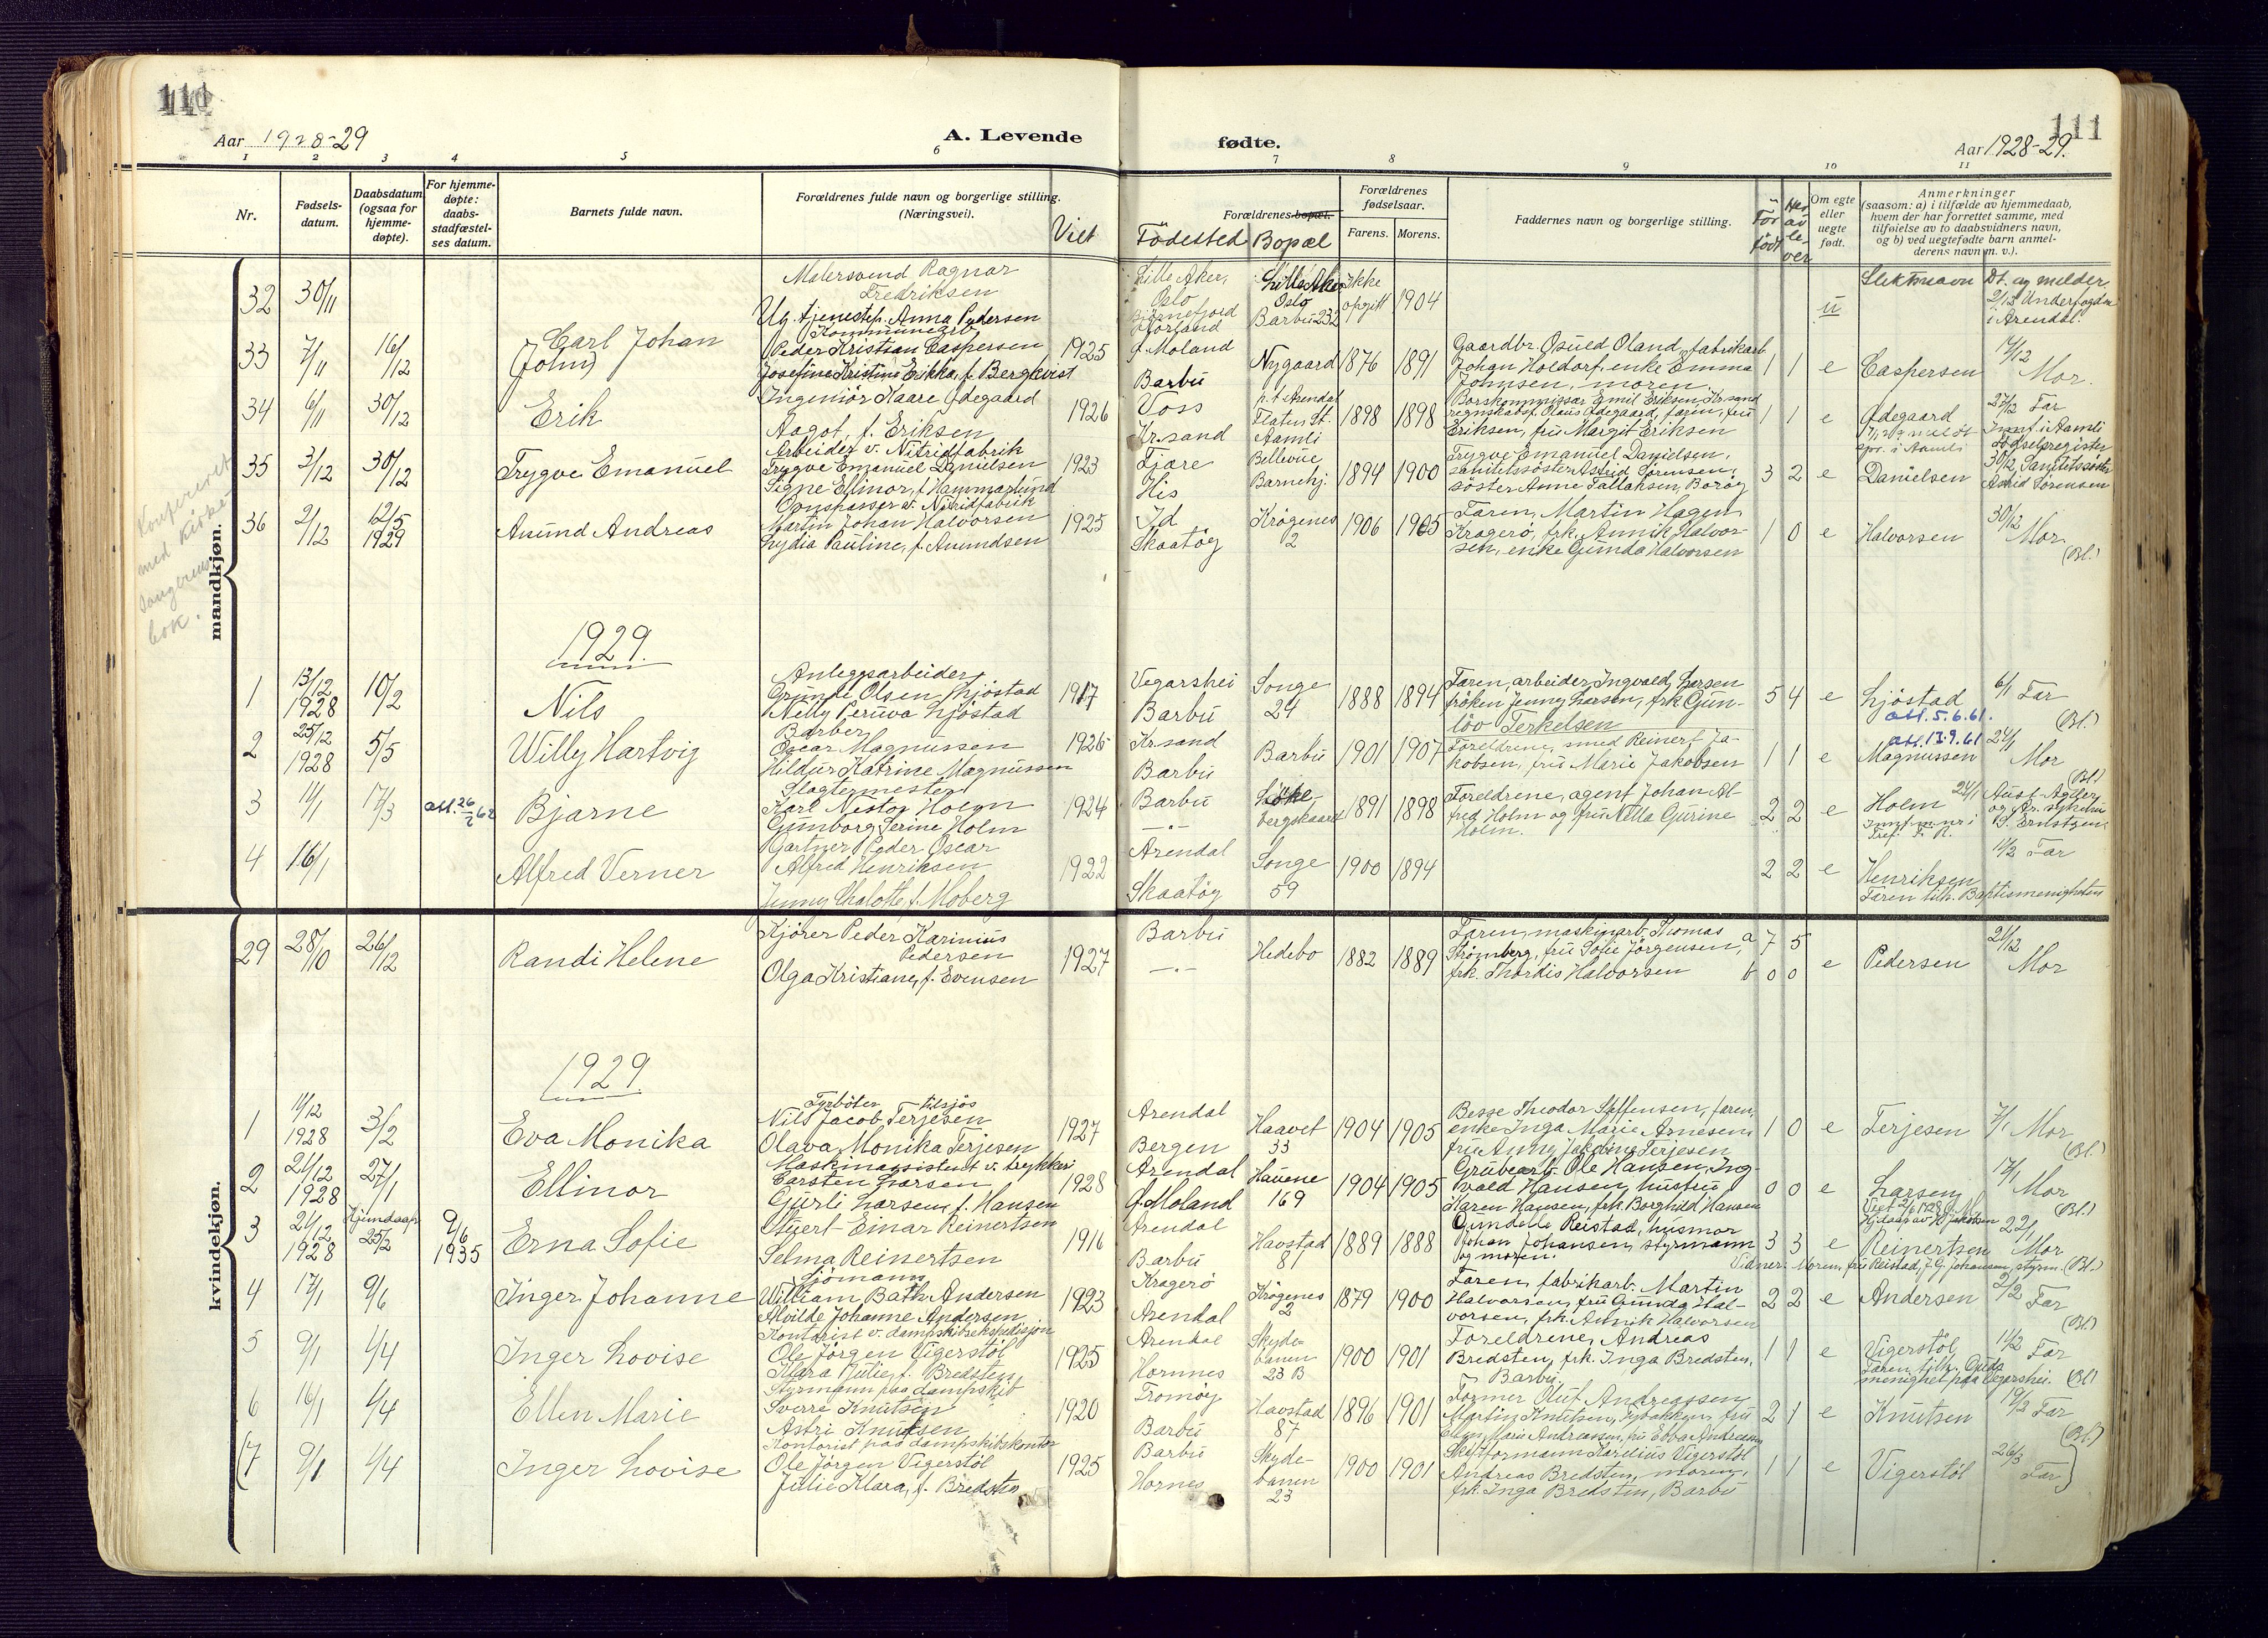 111
Aar 1928-29
A. Levende
fødte.
Aar 1928-29.
111
1 2 3 4 5 6 7 8 9 10 11
Nr.
Fødsels-
datum.
Daabsdatum
(ogsaa for
hjemme-
døpte).
For hjemme-
døpte:
daabs-
stadfæstel-
ses datum.
Barnets fulde navn.
Forældrenes fulde navn og borgerlige stilling.
(Næringsvei).
Viet
Forældrenes bopæl.
Födested
Bopæl
Forældrenes
fødselsaar.
Farens. Morens.
Faddernes navn og borgerlige stilling.
Før
født
Her
av
le-
ver
Om egte
eller
uegte
født.
Anmerkninger
(saasom: a) i tilfælde av hjemmedaab,
hvem der har forrettet samme, med
tilføielse av to daabsvidners navn,
og b) ved uegtefødte barn anmel-
derens navn m. v.).
Slektsnavn
Dt. og melder
mandkjøn.
Konfereret
med kirke-
sangerens
bok.
32 30/11
Malersvend Ragnar
Fredriksen
Ug. tjenestep. Anna Pedersen
Lille Aker,
Oslo
Bjørnefjord
Hörland
Lille Aker
Oslo
Barbu 232
Ikke
opgitt
1904
u
2/13 Underfogden
i Arendal.
33 7/11 16/12
Carl Johan
(John)
Kommunearb
Peder Kristian Caspersen
Josefine Kristine Erikka, f. Bergkvist
1925
Ø. Moland
Barbu
Nygaard
1876 1891
Gaardbr. Osuld Oland, fabrikarb.
Johan Holdorf, enke Emma
Johnsen, moren.
1 1 e
Caspersen
14/12
Mor.
34 6/11 30/12
Erik
Ingeniør Kaare Ødegaard
Aagot, f. Eriksen
1926
Voss
Kr.sand
p.t. Arendal
Flaten St.
Aamli
1898 1898
Borskommissær Emil Eriksen, Kr.sand
regnskabsf. Olaus Ødegaard, faren, frü
Eriksen, frü Margit Eriksen
1 1 e
Ødegaard
27/12 Far
Innf. i Aamli
fødselsregister
35 3/12 30/12
Trygve Emanuel
Arbeider v. Nitridfabrik
Trygve Emanuel Danielsen
Signe Ellinor, f. Hammarlund
1923
Fjære
His
Bellevüe
Barnehj.
1894 1900
Trygve Emanuel Danidsen,
sanitetssöster Astrid Sørensen,
söster Anne Tallaksen, Borøy
3 2 e
Danielsen
30/12 Sanitetssøster
Astrid Sørensen
36 2/12 12/5
1929
Anund Andreas
Ovnspasser v. Nitridfabrik
Martin Johan Halvorsen
Lydia Pauline, f. Anundsen
1925
Id
Skaatøy
Krøgenes
2
1906 1905
Faren, Martin Hagen
Kragerö, frk. Annik Halvor-
sen, enke Gunda Halvorsen
1 0 e
Halvorsen
30/12
Mor
(Bl.)
1929
1 13/12
1928
10/2
Nils
Anleggsarbeider
Gunde Olsen Ljöstad
Nelly Peruva Ljöstad
1917
Vegarshei
Barbu
Songe
24
1888 1894
Faren, arbeider Ingvald Larsen
fröken Jenny Larsen, frk Gun-
löv Terkelsen
5 4 e
Ljöstad
att. 5.6.61.
6/1 Far
(Bl.)
2 25/12
1928
5/5
Willy Hartvig
Barber
Oscar Magnussen
Hildur Katrine Magnussen
1926
Kr.sand
Barbu
Barbu
1901 1907
Foreldrene, smed Reinert Ja-
kobsen, frü Marie Jakobsen
1 1 e
att. 13.9.61
Magnussen
24/1
Mor
(Bl.)
3 11/1 17/3
att. 26/2 62
Bjarne
Slagtermester
Karl Nestor Holm
Gunborg Serine Holm
1924
Barbu
—"—
bergskaaret
1891 1898
Foreldrene, agent Johan Al-
fred Holm og frü Netta Gurine
Holm.
2 2 e
Holm
24/1 Aust-Agder
S. Ernstsen
4 16/1
Alfred Verner
Gartner Peder Oscar
Alfred Henriksen
Jenny Chalotte, f. Moberg
1922
Arendal
Skaatøy
Songe
59
1900 1894
2 2 e
Henriksen
11/2 Far
Faren tilh. Baptismenigheten
kvindekjøn.
29 28/10 26/12
Randi Helene
Kjörer Peder Karinius
Pedersen
Olga Kristiane, f. Evensen
1927
Barbu
—"—
Hedebo
1882 1889
Faren, maskinarb. Thomas
Strömberg, frü Sofie Jörgensen,
frk. Thordis Halvorsen
a 7 5
b 0 0
e
Pedersen
21/12
Mor
1929
1 11/12
1928
3/2
Eva Monika
Fyrböter tilsjös
Nils Jacob Terjesen
Olava Monika Terjesen
1927
Arendal
Bergen
Haavet
33
1904 1905
Besse Theodor Steffensen, faren,
enke Inga Marie Arnesen,
frü Anny Jakobine Terjesen
1 0 e
Terjesen
7/1 Mor
(Bl.)
2 21/12
1928
27/1
Ellinor
Maskinassistent v. trykkeri
Carsten Larsen
Gurli Larsen, f. Hansen
1928
Arendal
Ø. Moland
Hauene
169
1904 1905
Grubearb. Ole Hansen, Ing-
vald Hansen, hustru
Karen Hansen, frk. Borghild Hansen
0 0 e
Larsen
17/1
Mor
(Bl.)
3 21/12
1928
Hjemdaap
25/2
9/6
1935
Erna Sofie
Stuert Einar Reinertsen
Selma Reinertsen
1916
Arendal
Barbu
Havstad
81
1889 1888
Gundelle Reistad, husmor
Johan Johansen, styrmann
og moren.
3 3 e
Reinertsen
22/1
Mor
Vidner: Moren, frü Reistad, J. G. Johansen, styrm. (Bl.)
4 17/1 9/6
Inger Johanne
Sjömann
William Bath. Andersen
Alvilde Johanne Andersen
1923
Kragerö
Arendal
Krögenes
2
1879 1900
Faren, fabrikarb. Martin
Halvorsen, frü Gunda Hal-
vorsen, frk. Annik Halvorsen
2 2 e
Andersen
2/2
Far
(Bl.)
5 9/1 1/4
Inger Lovise
Kontorist v. dampskibsekspedisjon
Ole Jörgen Vigerstöl
Klara Julie, f. Bredsten
1925
Arendal
Hornnes
Skyde-
banen
23 B
1900 1901
Foreldrene, Andreas
Bredsten, frk. Inga Bredsten,
Barbu.
1 1 e
Vigerstöl
11/2
Far
Faren tilh. Guds
menighet paa Vegarshei. (Bl.)
6 16/1 1/4
Ellen Marie
Styrmann paa dampskib
Sverre Knutsen
Astri Knutsen
1920
Tromöy
Barbu
Havstad
87
1896 1901
Former Oluf Andreassen
Martin Knutsen, frü
Ellen Marie Andreassen, frü Ebba Andreassen
2 1 e
Knutsen
19/2 Far
(Bl.)
(7 9/1 1/4
Inger Lovise
Kontorist paa dampskibskontor
Ole Jörgen Vigerstöl
Julie Klara, f. Bredsten
1925
Barbu
Hornes
Skyde-
banen
23
1900 1901
Skibsformann Karelius Vigerstöl
Andreas Bredsten, moren,
frk. Inga Bredsten, Barbu
1 1 e
Vigerstöl
26/3
Far